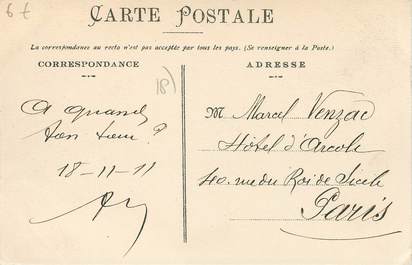 6 F
CARTE POSTALE
La correspondance au recto n'est pas acceptée par tous les pays. (Se renseigner à la Poste.)
CORRESPONDANCE
A quand
ton tour ?
18-11-11
ADRESSE
M. Marcel Venzac
Hôtel d'Arcole
40. rue du Roi de Sicile
Paris